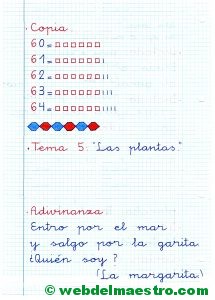 · Copia
60 = □□□□□□
61 = □□□□□□ı
62 = □□□□□□ıı
63 = □□□□□□ııı
64 = □□□□□□ıııı
· Tema 5: "Las plantas."
· Adivinanza
Entro por el mar
y salgo por la garita.
¿Quién soy?
(La margarita.)
© webdelmaestro.com